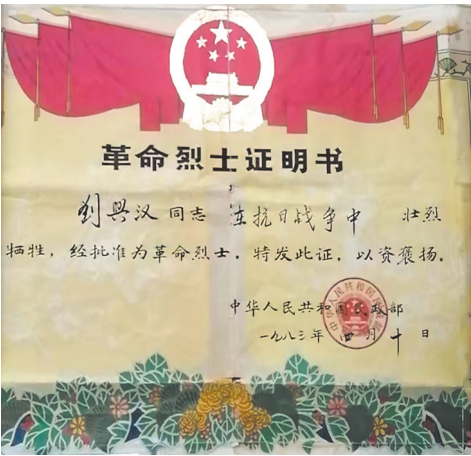 革命烈士证明书
刘兴汉同志在抗日战争中壮烈
牺牲，经批准为革命烈士．特发此证，以资褒扬．
中华人民共和国民政部
一九八三年四月十日